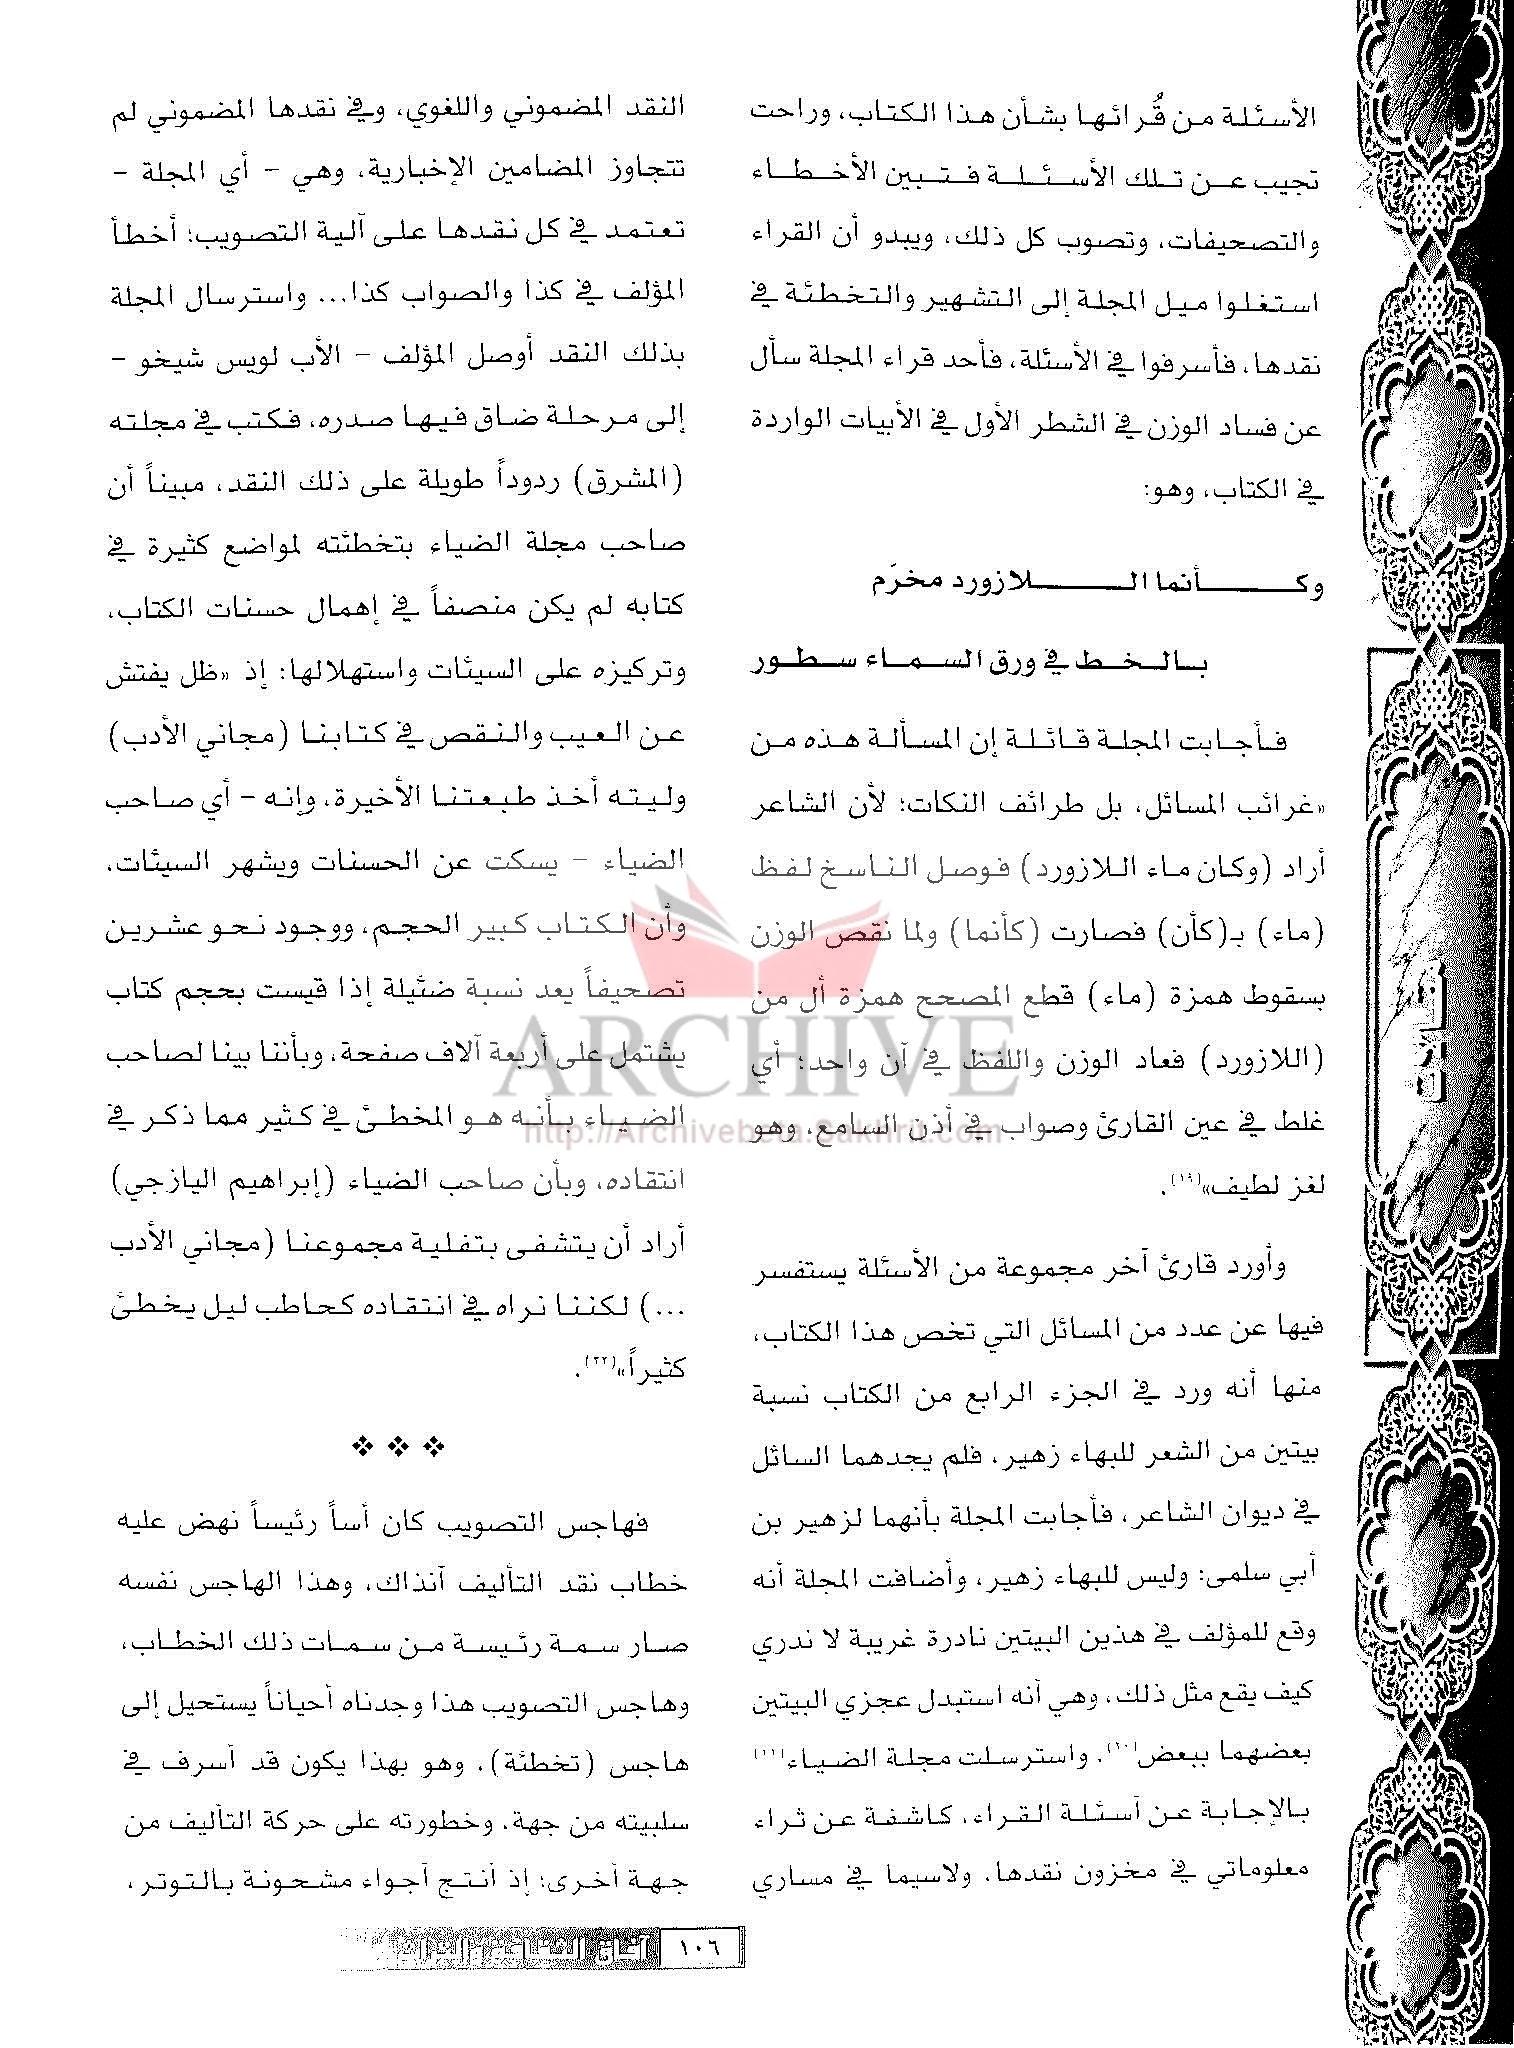 الأسئلة من قُرائها بشأن هذا الكتاب، وراحت
تجيب عن تلك الأسئلة فتبين الأخطاء
والتصحيفات، وتصوب كل ذلك، ويبدو أن القراء
استغلوا ميل المجلة إلى التشهير والتخطئة في
نقدها، فأسرفوا في الأسئلة، فأحد قراء المجلة سأل
عن فساد الوزن في الشطر الأول في الأبيات الواردة
في الكتاب، وهو:
وكأنما اللازورد مخرّم
بالخط في ورق السماء سطور
فأجابت المجلة قائلة إن المسألة هذه من
«غرائب المسائل، بل طرائف النكات؛ لأن الشاعر
أراد (وكان ماء اللازورد) فوصل الناسخ لفظ
(ماء) بـ(كأن) فصارت (كأنما) ولما نقص الوزن
بسقوط همزة (ماء) قطع المصحح همزة أل من
(اللازورد) فعاد الوزن واللفظ في آن واحد؛ أي
غلط في عين القارئ وصواب في أذن السامع، وهو
لغز لطيف»(١٩).
وأورد قارئ آخر مجموعة من الأسئلة يستفسر
فيها عن عدد من المسائل التي تخص هذا الكتاب،
منها أنه ورد في الجزء الرابع من الكتاب نسبة
بيتين من الشعر للبهاء زهير، فلم يجدهما السائل
في ديوان الشاعر، فأجابت المجلة بأنهما لزهير بن
أبي سلمى: وليس للبهاء زهير، وأضافت المجلة أنه
وقع للمؤلف في هذين البيتين نادرة غريبة لا ندري
كيف يقع مثل ذلك، وهي أنه استبدل عجزي البيتين
بعضهما ببعض(٢٠). واسترسلت مجلة الضياء(٢١)
بالإجابة عن أسئلة القراء، كاشفة عن ثراء
معلوماتي في مخزون نقدها، ولاسيما في مساري
النقد المضموني واللغوي، وفي نقدها المضموني لم
تتجاوز المضامين الإخبارية، وهي - أي المجلة -
تعتمد في كل نقدها على آلية التصويب؛ أخطأ
المؤلف في كذا والصواب كذا... واسترسال المجلة
بذلك النقد أوصل المؤلف - الأب لويس شيخو -
إلى مرحلة ضاق فيها صدره، فكتب في مجلته
(المشرق) ردوداً طويلة على ذلك النقد، مبيناً أن
صاحب مجلة الضياء بتخطئته لمواضع كثيرة في
كتابه لم يكن منصفاً في إهمال حسنات الكتاب،
وتركيزه على السيئات واستهلالها: إذ «ظل يفتش
عن العيب والنقص في كتابنا (مجاني الأدب)
وليته أخذ طبعتنا الأخيرة، وإنه - أي صاحب
الضياء - يسكت عن الحسنات ويشهر السيئات،
وأن الكتاب كبير الحجم، ووجود نحو عشرين
تصحيفاً يعد نسبة ضئيلة إذا قيست بحجم كتاب
يشتمل على أربعة آلاف صفحة، وبأننا بينا لصاحب
الضياء بأنه هو المخطئ في كثير مما ذكر في
انتقاده، وبأن صاحب الضياء (إبراهيم اليازجي)
أراد أن يتشفى بتفلية مجموعنا (مجاني الأدب
...) لكننا نراه في انتقاده كحاطب ليل يخطئ
كثيراً»(٢٢).
❖ ❖ ❖
فهاجس التصويب كان أساً رئيساً نهض عليه
خطاب نقد التأليف آنذاك، وهذا الهاجس نفسه
صار سمة رئيسة من سمات ذلك الخطاب،
وهاجس التصويب هذا وجدناه أحياناً يستحيل إلى
هاجس (تخطئة)، وهو بهذا يكون قد أسرف في
سلبيته من جهة، وخطورته على حركة التأليف من
جهة أخرى؛ إذ أنتج أجواء مشحونة بالتوتر،
مقالات
ARCHIVE
http://Archivebeta.Sakhrit.com
١٠٦ آفاق الثقافة والتراث